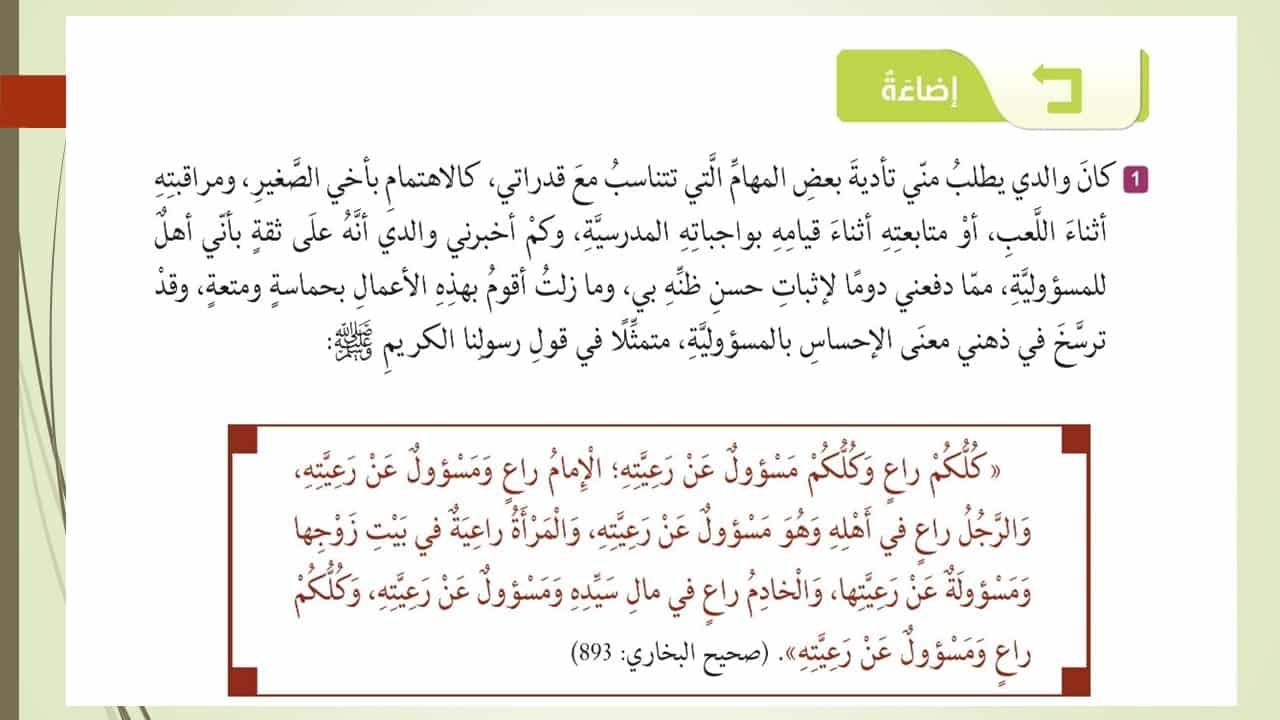 إضاءَةٌ
1 كانَ والدي يطلبُ منّي تأديةَ بعضِ المهامِّ الَّتي تتناسبُ معَ قدراتي، كالاهتمامِ بأخي الصَّغيرِ، ومراقبتِهِ
أثناءَ اللَّعبِ، أوْ متابعتِهِ أثناءَ قيامِهِ بواجباتِهِ المدرسيَّةِ، وكمْ أخبرني والدي أنَّهُ علَى ثقةٍ بأنّي أهلٌ
للمسؤوليَّةِ، ممّا دفعني دومًا لإثباتِ حسنِ ظنِّهِ بي، وما زلتُ أقومُ بهذِهِ الأعمالِ بحماسةٍ ومتعةٍ، وقدْ
ترسَّخَ في ذهني معنَى الإحساسِ بالمسؤوليَّةِ، متمثِّلًا في قولِ رسولِنا الكريمِ ﷺ:
«كُلُّكُمْ راعٍ وَكُلُّكُمْ مَسْؤولٌ عَنْ رَعِيَّتِهِ؛ الْإِمامُ راعٍ وَمَسْؤولٌ عَنْ رَعِيَّتِهِ،
وَالرَّجُلُ راعٍ في أَهْلِهِ وَهُوَ مَسْؤولٌ عَنْ رَعِيَّتِهِ، وَالْمَرْأَةُ راعِيَةٌ في بَيْتِ زَوْجِها
وَمَسْؤولَةٌ عَنْ رَعِيَّتِها، وَالْخادِمُ راعٍ في مالِ سَيِّدِهِ وَمَسْؤولٌ عَنْ رَعِيَّتِهِ، وَكُلُّكُمْ
راعٍ وَمَسْؤولٌ عَنْ رَعِيَّتِهِ». (صحيح البخاري: 893)